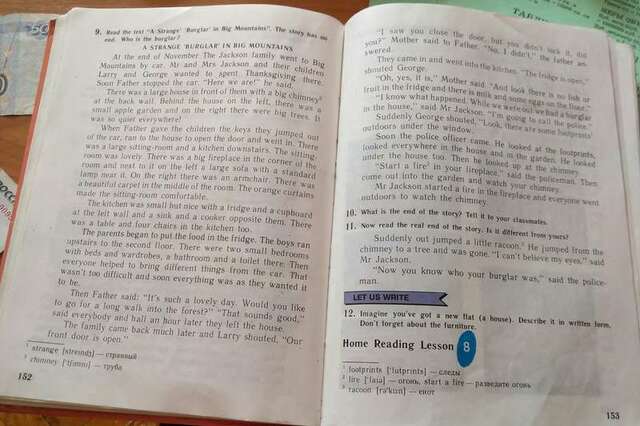 9. Read the text "A Strange 'Burglar' in Big Mountains". The story has no
end. Who is the burglar?
A STRANGE 'BURGLAR' IN BIG MOUNTAINS
At the end of November The Jackson family went to Big
Mountains by car. Mr and Mrs Jackson and their children
Larry and George wanted to spend Thanksgiving there.
Soon Father stopped the car. "Here we are!" he said.
There was a large house in front of them with a big chimney²
at the back wall. Behind the house on the left, there was a
small apple garden and on the right there were big trees. It
was so quiet everywhere!
When Father gave the children the keys they jumped out
of the car, ran to the house to open the door and went in. There
was a large sitting-room and a kitchen downstairs. The sitting-
room was lovely. There was a big fireplace in the corner of the
room and next to it on the left a large sofa with a standard
lamp near it. On the right there was an armchair. There was
a beautiful carpet in the middle of the room. The orange curtains
made the sitting-room comfortable.
The kitchen was small but nice with a fridge and a cupboard
at the left wall and a sink and a cooker opposite them. There
was a table and four chairs in the kitchen too.
The parents began to put the food in the fridge. The boys ran
upstairs to the second floor. There were two small bedrooms
with beds and wardrobes, a bathroom and a toilet there. Then
everyone helped to bring different things from the car. That
wasn't too difficult and soon everything was as they wanted it
to be.
Then Father said: "It's such a lovely day. Would you like
to go for a long walk into the forest?" "That sounds good,"
said everybody and half an hour later they left the house.
The family came back much later and Larry shouted, "Our
front door is open."
¹ strange [streındʒ] — странный
² chimney ['tʃımnı] — труба
152
"I saw you close the door, but you didn't lock it, did
you?" Mother said to Father. "No, I didn't," the father an-
swered.
They came in and went into the kitchen. "The fridge is open,"
shouted George.
"Oh, yes, it is," Mother said. "And look there is no fish or
fruit in the fridge and there is milk and some eggs on the floor."
"I know what happened. While we were out we had a burglar
in the house," said Mr Jackson. "I'm going to call the police."
Suddenly George shouted, "Look, there are some footprints¹
outdoors under the window.
Soon the police officer came. He looked at the footprints,
looked everywhere in the house and in the garden. He looked
under the house too. Then he looked up at the chimney.
"Start a fire² in your fireplace," said the policeman. Then
come out into the garden and watch your chimney.
Mr Jackson started a fire in the fireplace and everyone went
outdoors to watch the chimney.
10. What is the end of the story? Tell it to your classmates.
11. Now read the real end of the story. Is it different from yours?
Suddenly out jumped a little racoon.³ He jumped from the
chimney to a tree and was gone. "I can't believe my eyes," said
Mr Jackson.
"Now you know who your burglar was," said the police-
man.
LET US WRITE
12. Imagine you've got a new flat (a house). Describe it in written form.
Don't forget about the furniture.
Home Reading Lesson 8
¹ footprints ['fʊtprınts] — следы
² fire ['faıə] — огонь, start a fire — разведите огонь
³ racoon [rə'ku:n] — енот
153
50